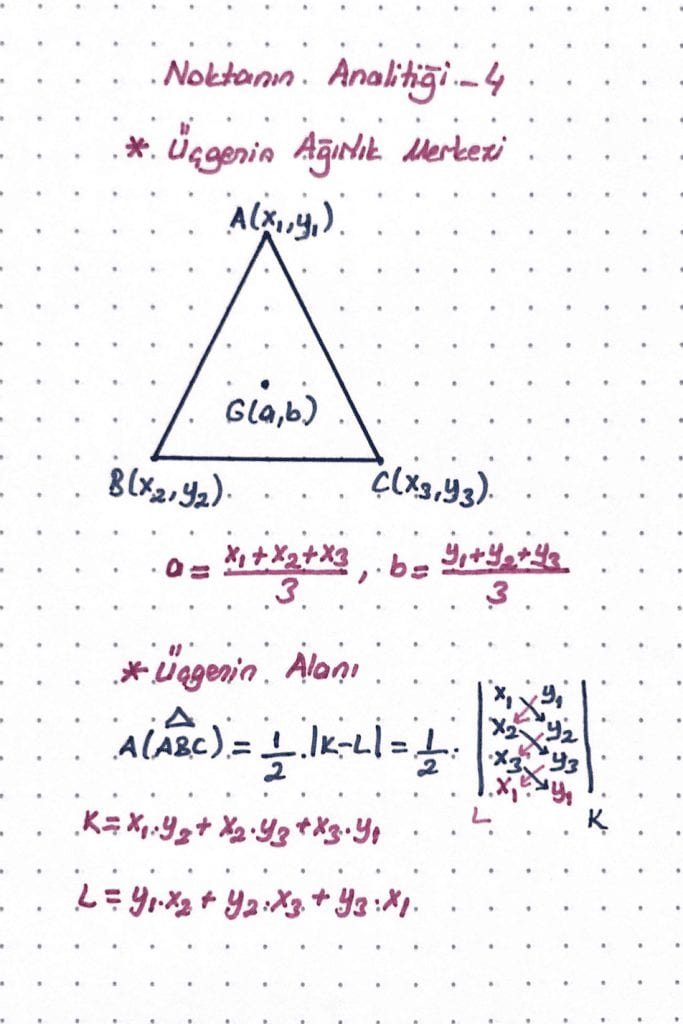 Noktanın Analitiği - 4
* Üçgenin Ağırlık Merkezi
A(x₁,y₁)
G(a,b)
B(x₂,y₂) C(x₃,y₃)
a = (x₁+x₂+x₃)/3 , b = (y₁+y₂+y₃)/3
* Üçgenin Alanı
A(ABC) = 1/2 . |K-L| = 1/2 .
x₁ y₁
x₂ y₂
x₃ y₃
x₁ y₁
L K
K = x₁.y₂ + x₂.y₃ + x₃.y₁
L = y₁.x₂ + y₂.x₃ + y₃.x₁